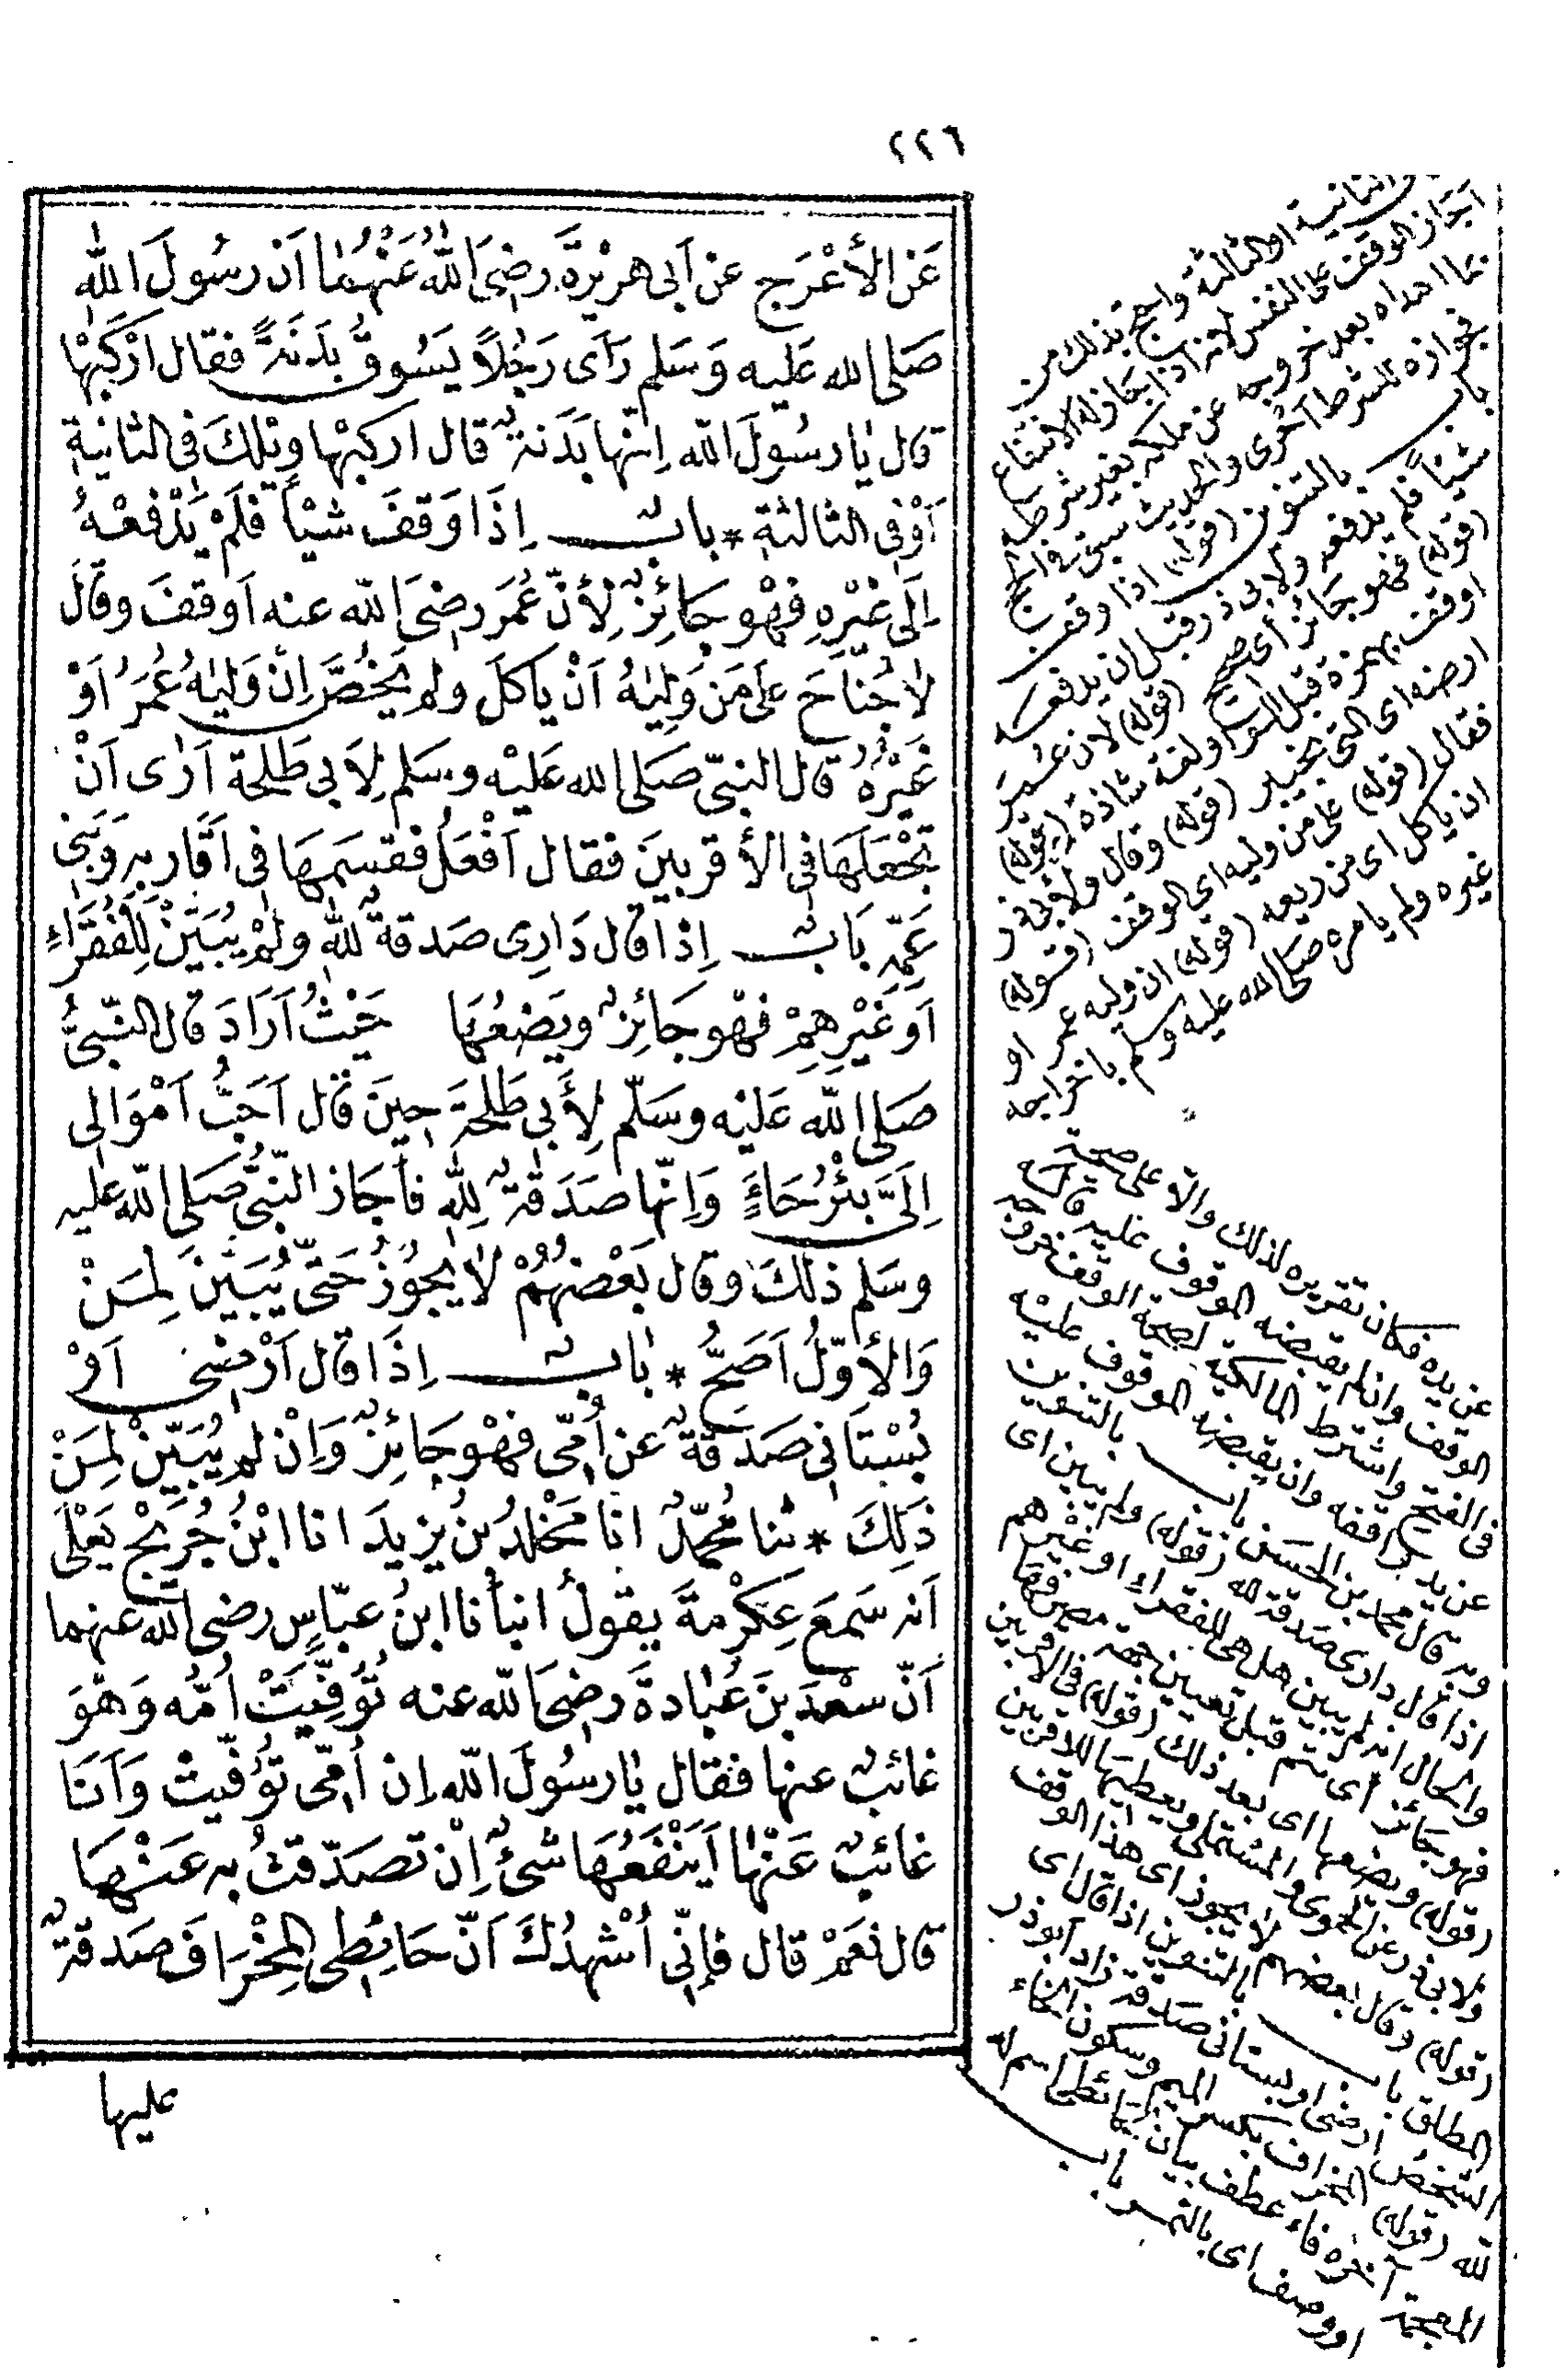 ٢٢٦
عَنِ الأَعْرَجِ عن أَبى هريْرَةَ رضىَ اللهُ عَنْهُمَا أنّ رسُولَ اللهِ
صَلى الله عَليه وَسَلم رَأى رَجُلاً يَسُوقُ بَدَنَةً فقال ارْكَبْها
قال يا رسُولَ الله اِنّها بَدَنةٌ قال اركبْها ويْلكَ فى الثانيةِ
أوْ فى الثالثةِ * بابٌ اِذَا وَقفَ شيْأً فلَمْ يَدْفعْهُ
اِلَى غيْرِهِ فهْو جَائِزٌ لِأنّ عُمَر رضىَ الله عنه اَوقفَ وقالَ
لاجُناحَ على مَن وَلِيَهُ اَنْ ياكلَ ولم يَخُصَّ اِنْ وَلِيَهُ عُمَرُ اَوْ
غَيْرُهُ قال النبىّ صَلى الله عَليْه وسَلم لِأَبى طَلحةَ أرَى اَنْ
تجْعَلَهَا فى الأقربينَ فقال اَفْعَلُ فقسَمهَا فى اَقَاربِهِ وَبَنى
عَمِّهِ بَابٌ اِذا قال دَارِى صَدقةٌ للهِ ولمْ يُبَيّنْ لِلفُقَرَاءِ
اَو غَيْرِهِمْ فهْو جَائِزٌ ويَضعُهَا حَيْثُ اَرَادَ قال النّبىُّ
صَلى الله عَليْه وسَلّم لِأَبى طَلحَةَ حِينَ قال اَحَبُّ اَمْوَالى
اِلَىَّ بَيْرُحَاءَ وَاِنّها صَدَقةٌ لِلّهِ فأَجَاز النّبىُّ صَلى الله عليه
وسَلم ذلكَ وقال بَعْضهُمْ لا يجُوزُ حَتّى يُبَيّنَ لِمَنْ
وَالأوّلُ اَصَحُّ * بابٌ اِذَا قال اَرْضى اَوْ
بُسْتَانى صَدَقةٌ عن اُمّى فهْو جَائِزٌ وَاِنْ لم يُبَيّنْ لِمَنْ
ذَلِكَ * ثنا مُحمّدٌ انا مَخْلدُ بنُ يزيدَ انا ابْنُ جُرَيْجٍ يَعْلَى
اَنه سَمعَ عِكْرمةَ يقولُ انبأنا ابنُ عبّاسٍ رضى الله عنهما
اَنّ سعْدَ بنَ عُبادةَ رضىَ الله عنه تُوُفِّيَتْ اُمّه وَهْوَ
غائبٌ عنها فقال يا رسُولَ الله اِن اُمّى تُوُفّيتْ وَاَنَا
غائبٌ عَنْها اَيَنْفَعُهَا شَىْءٌ اِنْ تصَدّقتُ به عَنْهَا
قال نعَمْ قال فإنّى اُشْهِدُكَ اَنّ حَائِطِى المِخْرَافَ صَدقةٌ
عليها
الثانية او الثالثة واحتج بذلك من
اجاز الوقف على النفس لانه اذا جاز له الانتفاع
بما اهداه بعد خروجه عن ملكه بغير شرط
فجوازه للشرط اَحْرى والحديث سبق فى الحج
باب بالتنوين (قوله) اذا وقف
شيئاً فلم يدفعه ولابى ذر قبل ان يدفعه
(قوله) فهو جائز أى صحيح (قوله) لان عمر
اوقف بهمزة قبل الواو لغة شاذة (قوله)
ارضه اى التى بخيبر (قوله) وقال ولابى ذر
فقال (قوله) على من وليه اى الوقف (قوله)
ان ياكل اى من ريعه (قوله) ان وليه عمر او
غيره ولم يامره صلى الله عليه وسلم باخراجه
عن يده فكان تقريره لذلك والاّ على صحة
الوقف وان لم يقبضه الموقوف عليه قاله
فى الفتح واشترط المالكية لصحة الوقف خروجه
عن يد واقفه وان يقبضه الموقوف عليه
وبه قال محمد بن الحسن باب بالتنوين
اذا قال دارى صدقة لله (قوله) ولم يبين اى
والحال انه لم يبين هل هى للفقراء او غيرهم
فهو جائز اى يتم قبل تعيين جهة مصرفها
(قوله) ويضعها اى بعد ذلك (قوله) فى الاقربين
ولابى ذر عن الحموى والمستملى ويعطيها للاقربين
(قوله) وقال بعضهم لا يجوز اى هذا الوقف
المطلق باب بالتنوين اذا قال اى
الشخص ارضى او بستانى صدقة زاد ابوذر
لله (قوله) المخراف بكسر الميم وسكون الخاء
المعجمة آخره فاء عطف بيان لحائطى اسم له
او وصف اى بالثمر باب